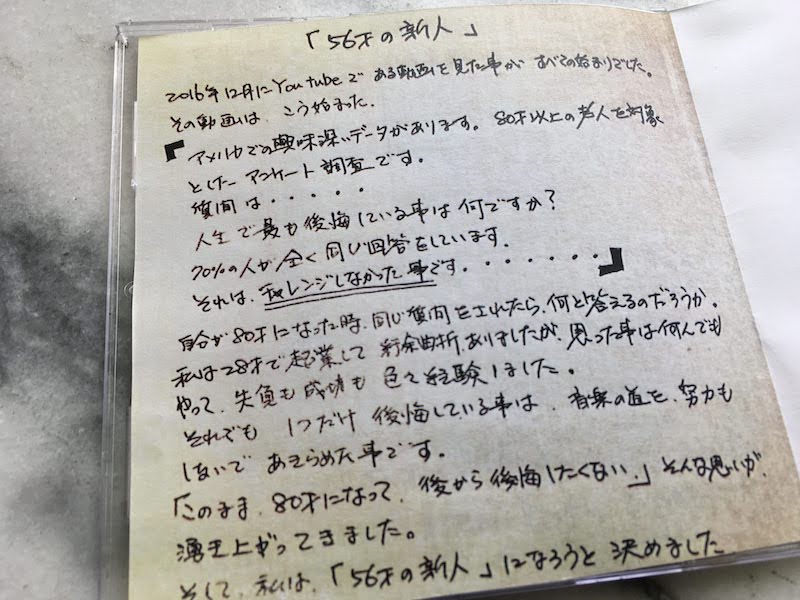 「56才の新人」
2016年12月にYoutubeで ある動画を見た事が すべての始まりでした。
その動画は、こう始まった。
「アメリカでの興味深いデータがあります。80才以上の老人を対象
としたアンケート調査です。
質問は・・・・・
人生で最も後悔している事は何ですか?
70%の人が全く同じ回答をしています。
それは、チャレンジしなかった事です。・・・・・・」
自分が80才になった時、同じ質問をされたら、何と答えるのだろうか。
私は28才で起業して 紆余曲折、ありましたが、思った事は何んでも
やって、失負も成功も 色々経験しました。
それでも 1つだけ 後悔している事は、音楽の道を、努力も
しないで あきらめた事です。
「このまま、80才になって、後から後悔したくない。」そんな思いが、
湧き上がってきました。
そして、私は、「56才の新人」になろうと 決めました